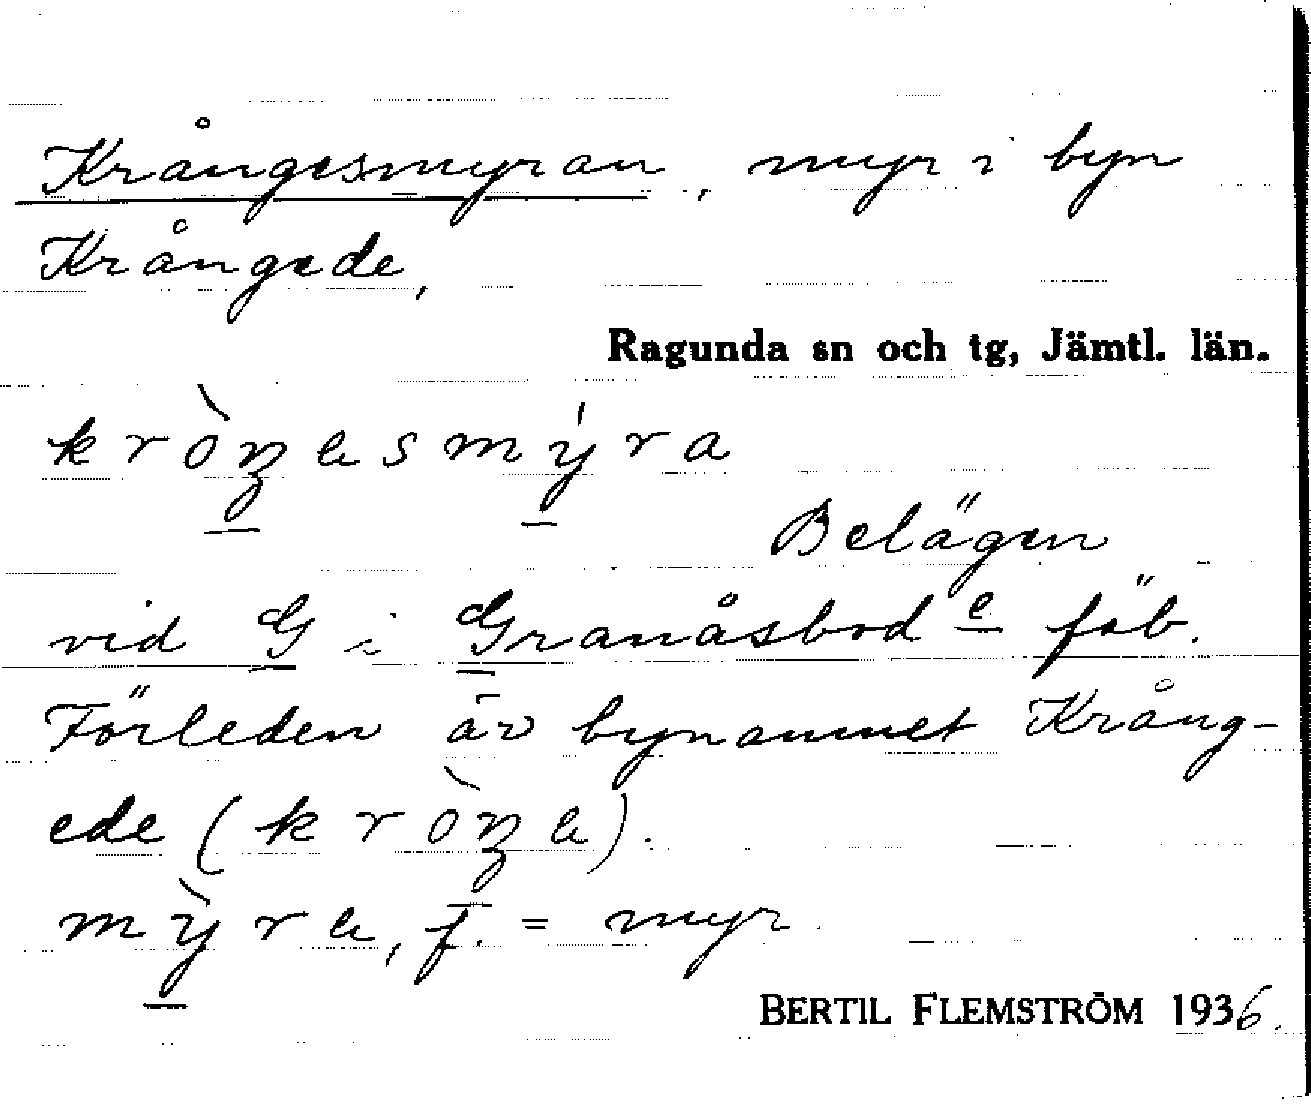 Krångesmyran, myr i byn
Krångede,
Ragunda sn och tg, Jämtl. län.
kròŋesmýra
Belägen
vid G i Granåsbode föb.
Förleden är bynamnet Krång-
ede (kròŋe).
mỳre, f. = myr
BERTIL FLEMSTRÖM 1936.